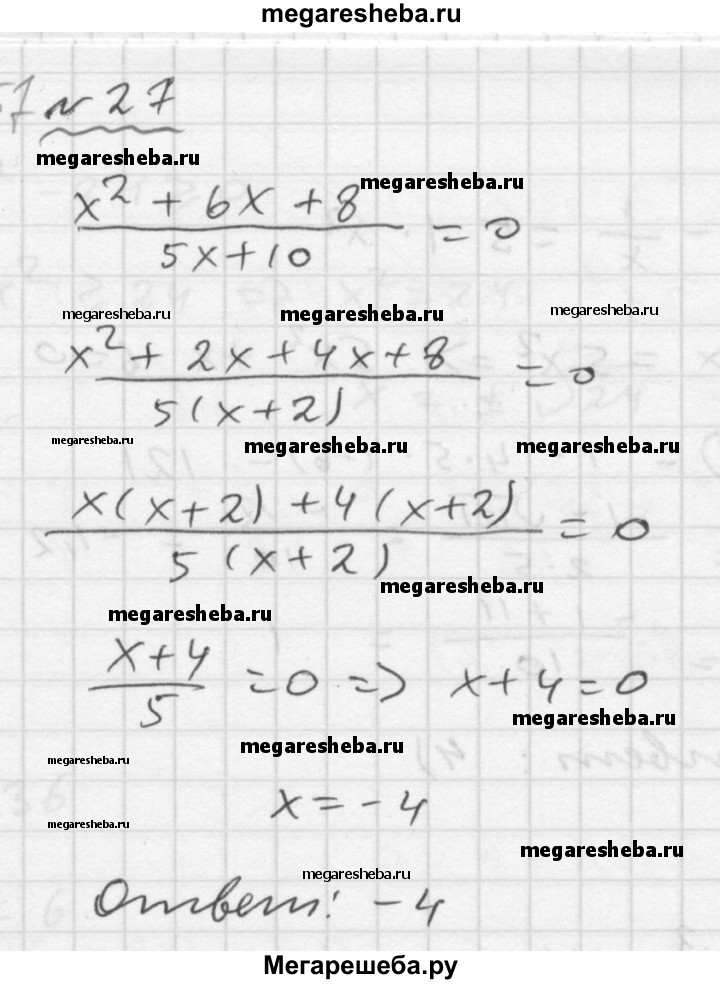 megaresheba.ru
57 № 27
megaresheba.ru
megaresheba.ru
x² + 6x + 8
——— = 0
5x+10
megaresheba.ru megaresheba.ru megaresheba.ru
x² + 2x + 4x + 8
——— = 0
5(x+2)
megaresheba.ru megaresheba.ru megaresheba.ru
x(x+2) + 4(x+2)
——— = 0
5(x+2)
megaresheba.ru
megaresheba.ru
x+4
——— = 0 => x+4=0
5
megaresheba.ru
megaresheba.ru
megaresheba.ru
x = -4
megaresheba.ru
megaresheba.ru
megaresheba.ru
Ответ: -4
Мегарешеба.ру